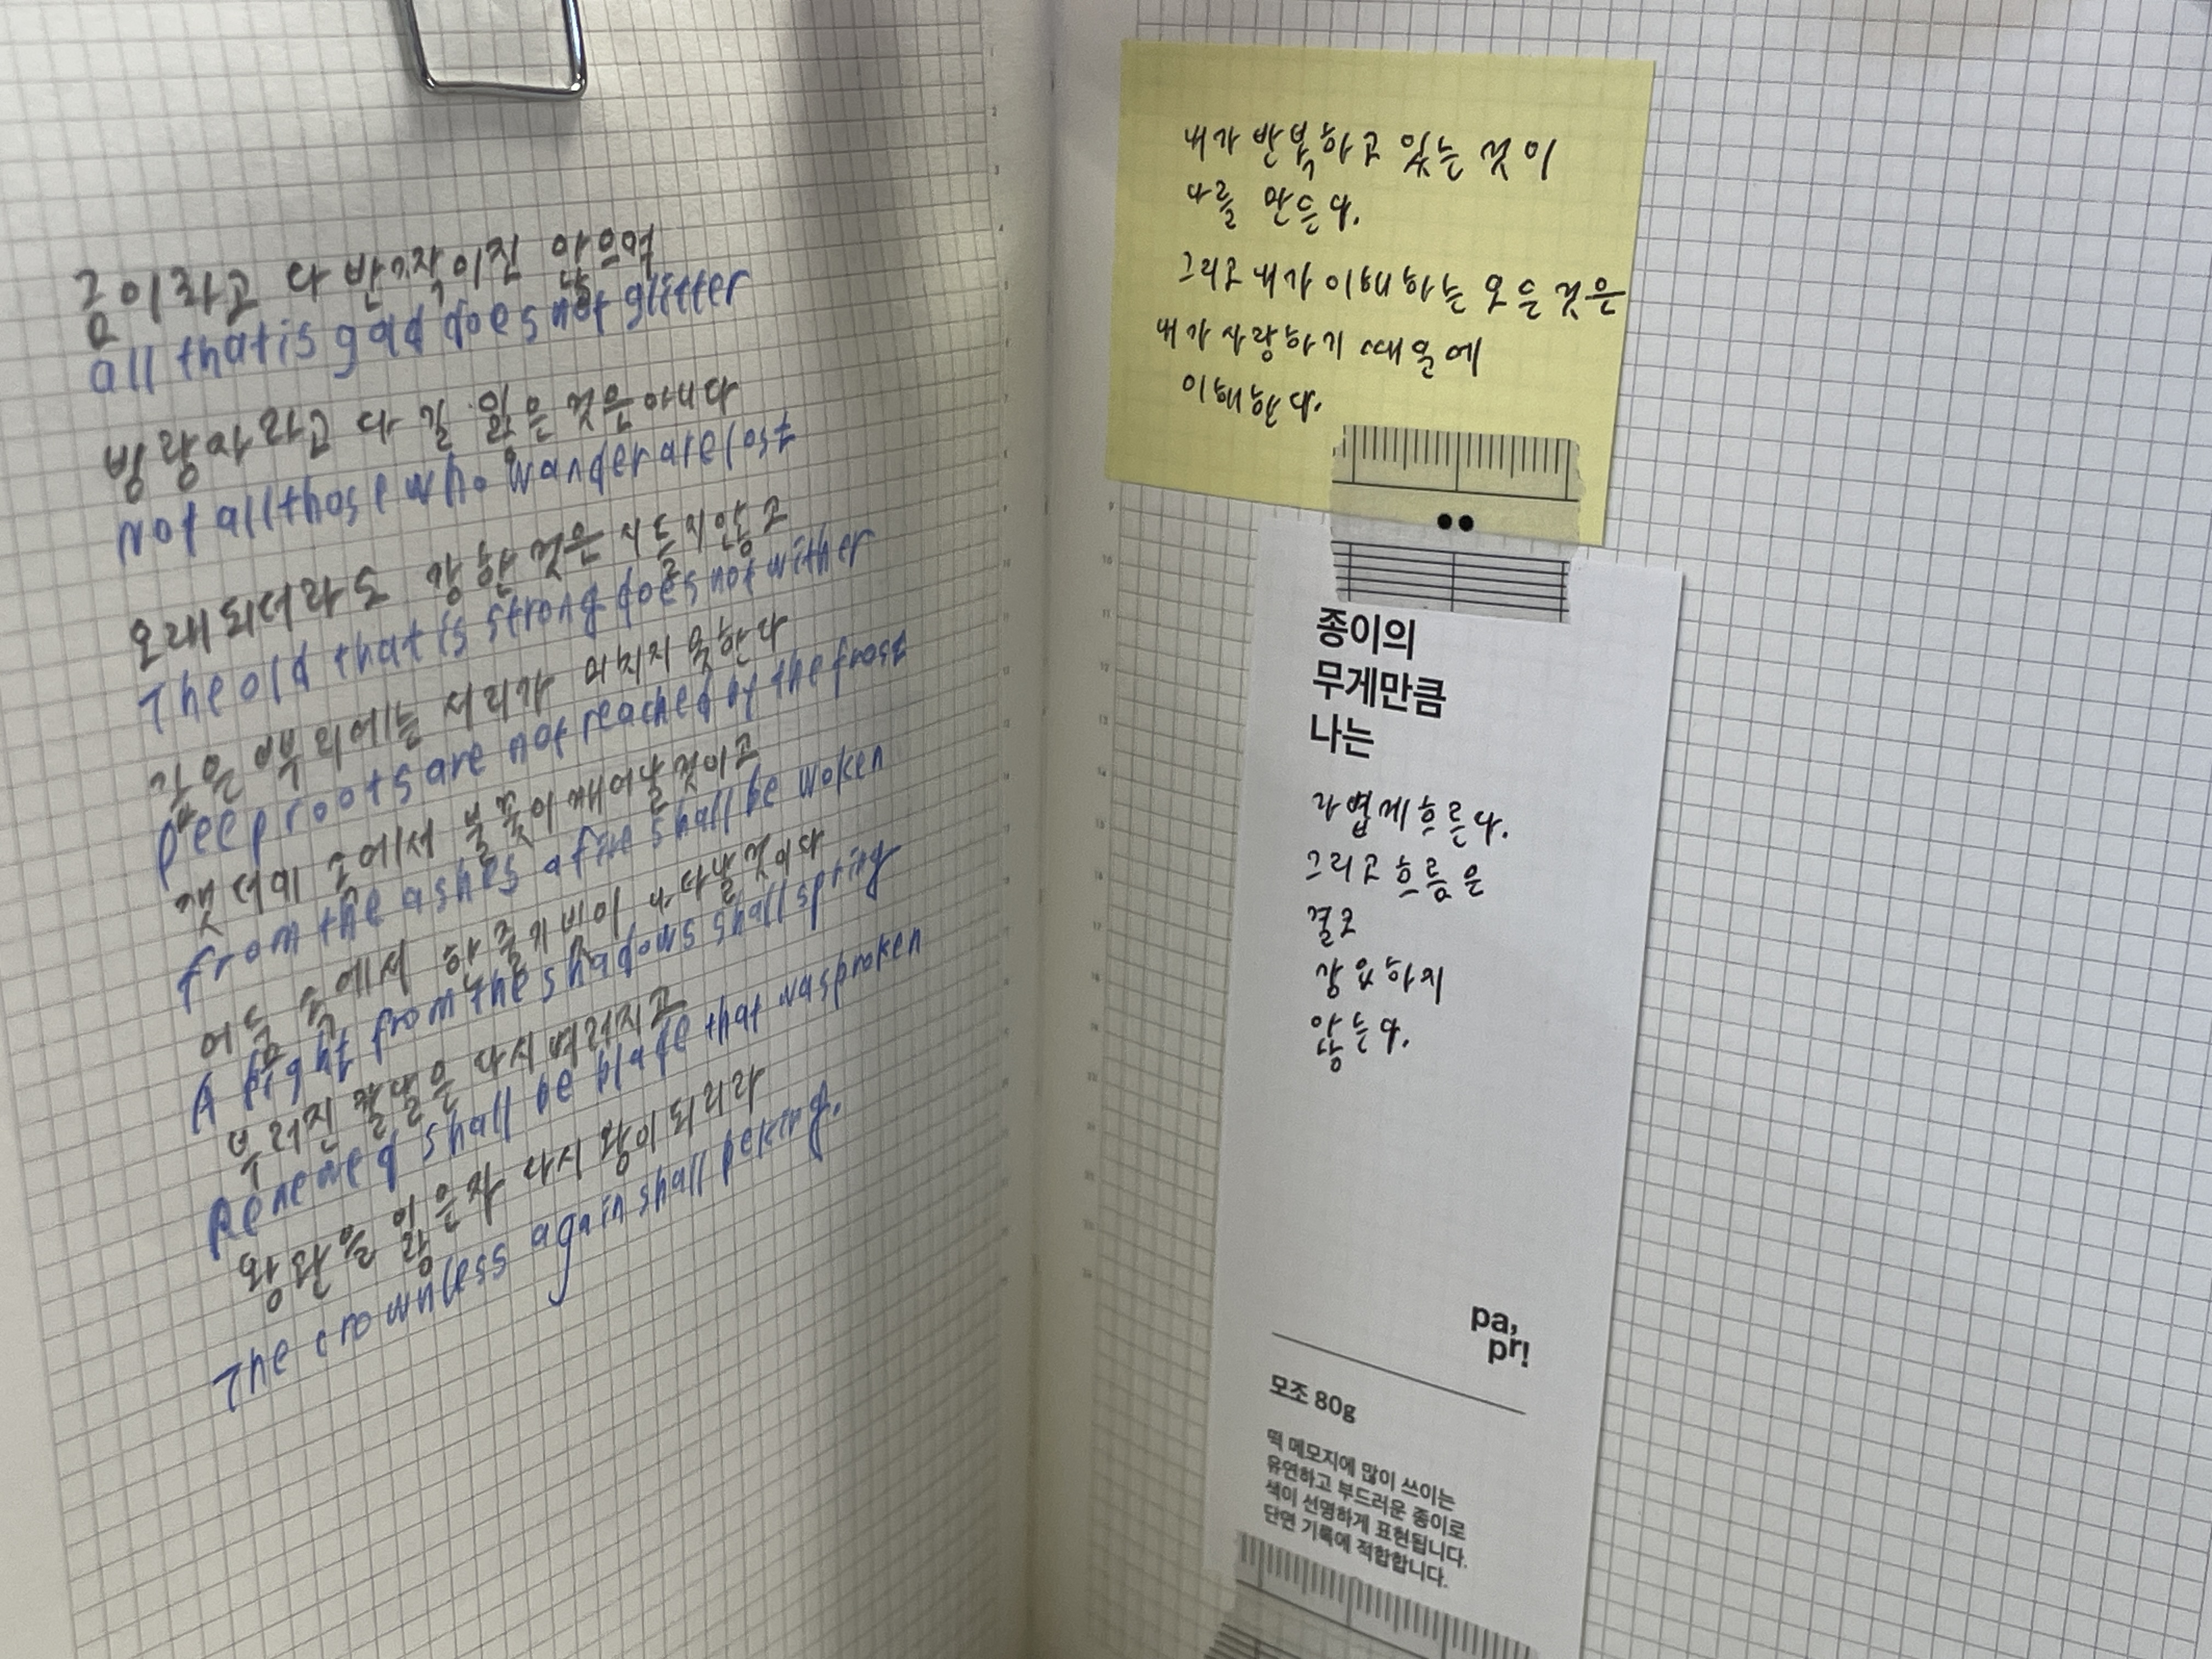 금이라고 다 반짝이진 않으며
all that is gold does not glitter
방랑자라고 다 길 잃은 것은 아니다
Not all those who wander are lost
오래되더라도 강한 것은 시들지 않고
The old that is strong does not wither
깊은 뿌리에는 서리가 미치지 못한다
Deep roots are not reached by the frost
잿더미 속에서 불꽃이 깨어날 것이고
from the ashes a fire shall be woken
어둠 속에서 한 줄기 빛이 나타날 것이다
A light from the shadows shall spring
부러진 칼날은 다시 벼려지고
Renewed shall be blade that was broken
왕관을 잃은 자 다시 왕이 되리라
The crownless again shall be king.
내가 반복하고 있는 것이
나를 만든다.
그리고 내가 이해하는 모든 것은
내가 사랑하기 때문에
이해한다.
종이의
무게만큼
나는
가볍게 흐른다.
그리고 흐름은
결코
강요하지
않는다.
pa,
pr!
모조 80g
떡 메모지에 많이 쓰이는
유연하고 부드러운 종이로
색이 선명하게 표현됩니다.
단면 기록에 적합합니다.